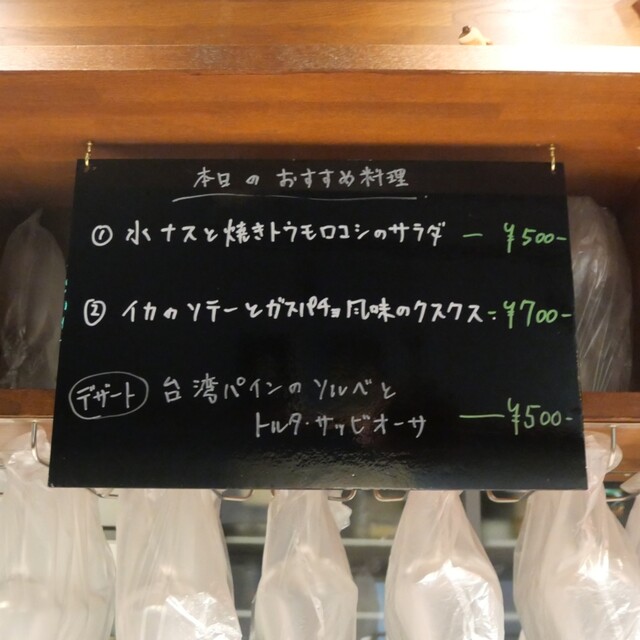 本日のおすすめ料理
① 水ナスと焼きトウモロコシのサラダ — ¥500-
② イカのソテーとガスパチョ風味のクスクス - ¥700-
デザート 台湾パインのソルベと
トルタ・サッビオーサ — ¥500-